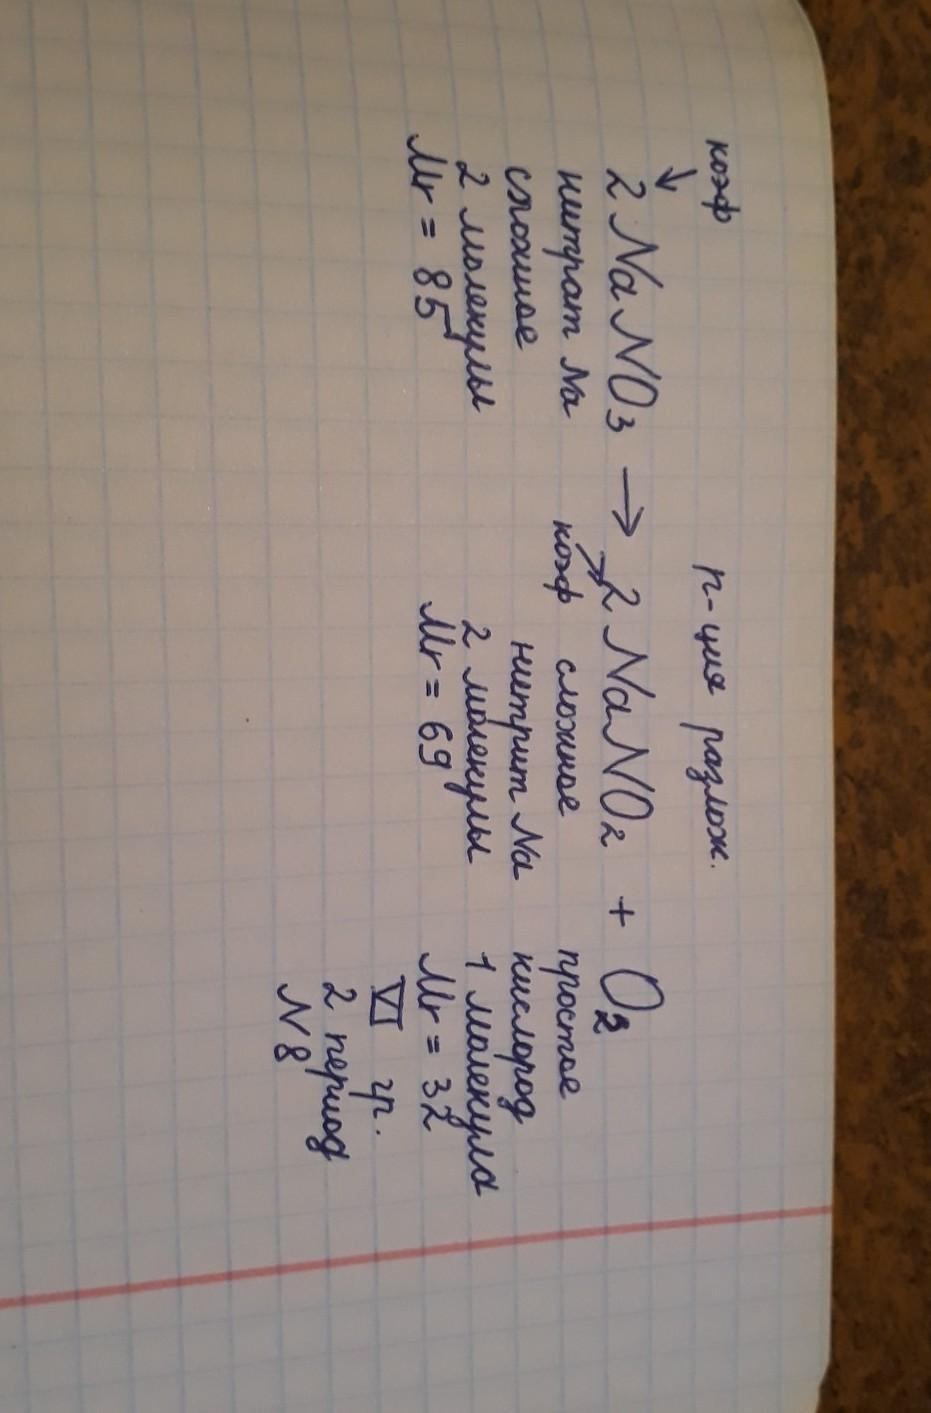 р-ция разлож.
коэф
↓
2 NaNO₃ → 2 NaNO₂ + O₂
нитрат Na коэф сложное простое
сложное нитрит Na кислород
2 молекулы 2 молекулы 1 молекула
Mr = 85 Mr = 69 Mr = 32
VI гр.
2 период
N 8